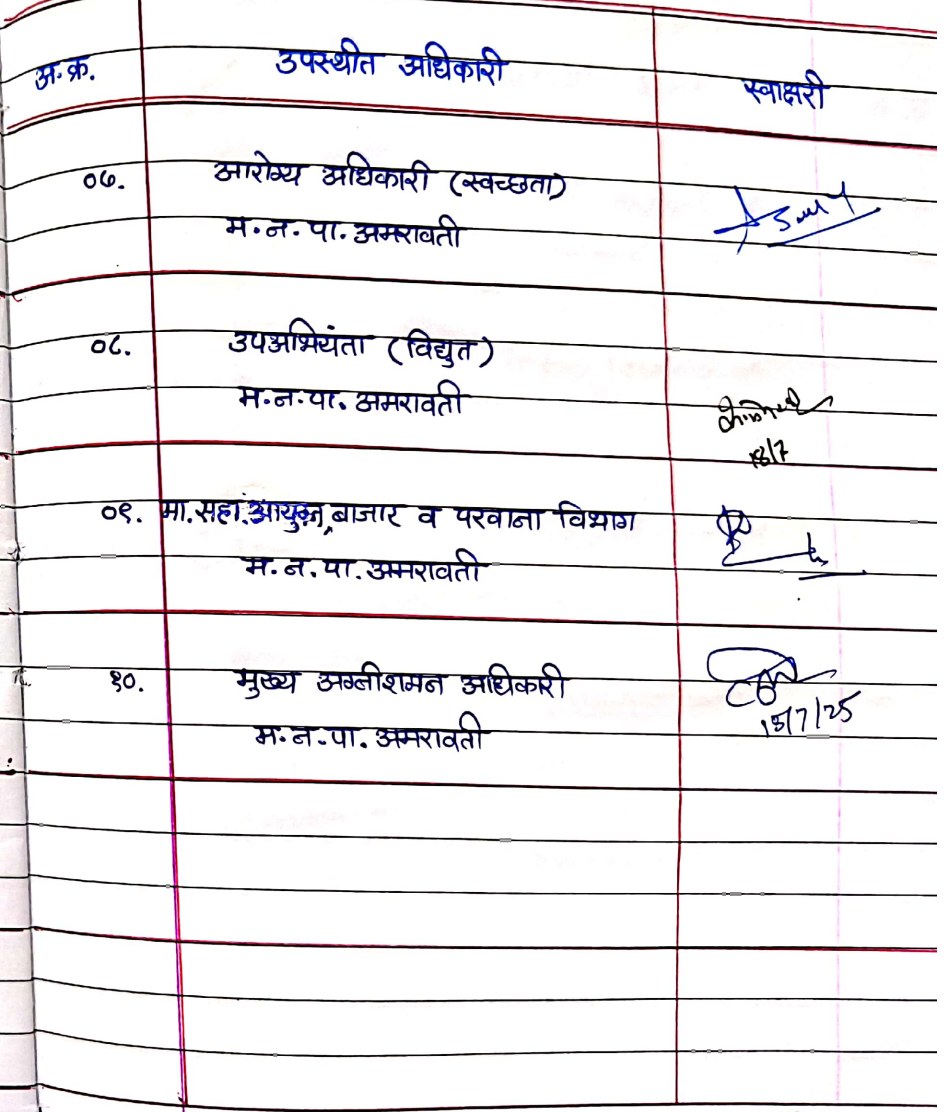 अ.क्र. उपस्थीत अधिकारी स्वाक्षरी
०७. आरोग्य अधिकारी (स्वच्छता)
म.न.पा.अमरावती
०८. उपअभियंता (विद्युत)
म.न.पा. अमरावती
18/7
०९. मा.सहा.आयुक्त, बाजार व परवाना विभाग
म.न.पा.अमरावती
१०. मुख्य अग्नीशमन अधिकारी
18/7/25
म.न.पा. अमरावती